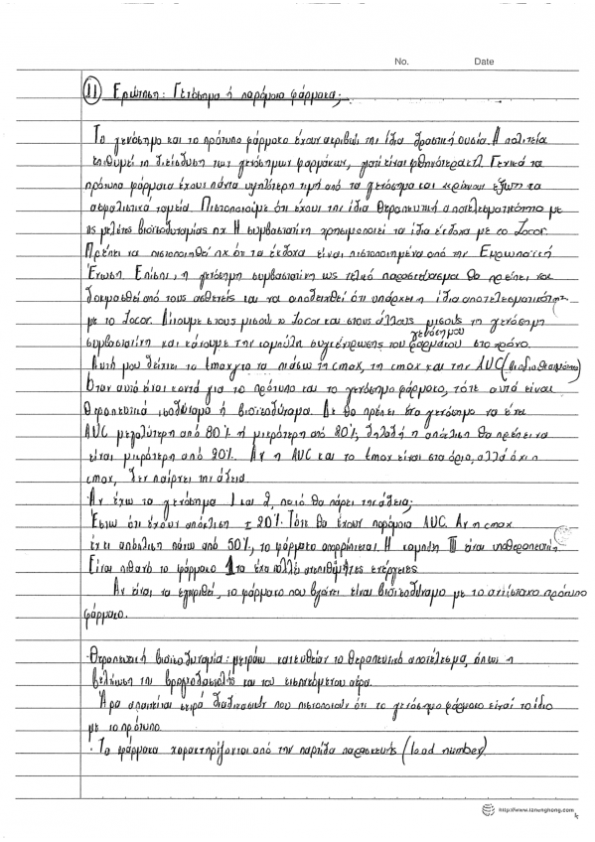 No. Date
11 Ερώτηση: Γενόσημα ή παρόμοια φάρμακα;
Το γενόσημο και το πρότυπο φάρμακο έχουν ακριβώς την ίδια δραστική ουσία. Η πολιτεία
επιθυμεί τη διείσδυση των γενόσημων φαρμάκων, γιατί είναι φθηνότερα κτλ. Γενικά τα
πρότυπα φάρμακα έχουν πάντα υψηλότερη τιμή από τα γενόσημα και κρίνονται έξω τα
ασφαλιστικά ταμεία. Πιστοποιούμε ότι έχουν την ίδια θεραπευτική αποτελεσματικότητα με
τις μελέτες βιοϊσοδυναμίας πχ Η σιμβαστατίνη χρησιμοποιεί τα ίδια έκδοχα με το Zocor.
Πρέπει να πιστοποιηθεί πχ ότι τα έκδοχα είναι πιστοποιημένα από την Ευρωπαϊκή
Ένωση. Επίσης, η γενόσημη σιμβαστατίνη ως τελικό παρασκεύασμα θα πρέπει να
δοκιμασθεί από τους ασθενείς και να αποδειχθεί ότι υπάρχει η ίδια αποτελεσματικότητα
με το Zocor. Δίνουμε στους μισούς το Zocor και στους άλλους μισούς τη γενόσημη
σιμβαστατίνη και κάνουμε την καμπύλη συγκέντρωσης του γενόσημου φαρμάκου στο χρόνο.
Αυτή μου δείχνει το tmax για να πιάσω τη cmax, τη cmax και την AUC
Όταν αυτά είναι κοντά για το πρότυπο και το γενόσημο φάρμακο, τότε αυτά είναι
θεραπευτικά ισοδύναμα ή βιοϊσοδύναμα. Δε θα πρέπει στο γενόσημο να έχει
AUC μεγαλύτερη από 80% ή μικρότερη από 20%, δηλαδή η απόκλιση θα πρέπει να
είναι μικρότερη από 20%. Αν η AUC και το tmax είναι στα όρια, αλλά όχι η
cmax, δεν παίρνει την άδεια.
Αν έχω τα γενόσημα 1 και 2, ποιό θα πάρει την άδεια;
Έστω ότι έχουν απόκλιση ± 20%. Τότε θα έχουν παρόμοια AUC. Αν η cmax
έχει απόκλιση πάνω από 50%, το φάρμακο απορρίπτεται. Η καμπύλη III είναι υποθεραπευτική
Είναι πιθανό το φάρμακο 1 να έχει πολλές ανεπιθύμητες ενέργειες
Αν είναι να εγκριθεί, το φάρμακο που βγαίνει είναι βιοϊσοδύναμο με το αντίστοιχο πρότυπο
φάρμακο.
Θεραπευτική βιοϊσοδυναμία: μετράω κατευθείαν το θεραπευτικό αποτέλεσμα, όπως η
βελτίωση της και του εισπνεόμενου αέρα.
Άρα απαιτείται σειρά διαδικασιών που πιστοποιούν ότι το γενόσημο φάρμακο είναι το ίδιο
με το πρότυπο.
· Το φάρμακα χαρακτηρίζονται από την παρτίδα παρασκευής (load number)